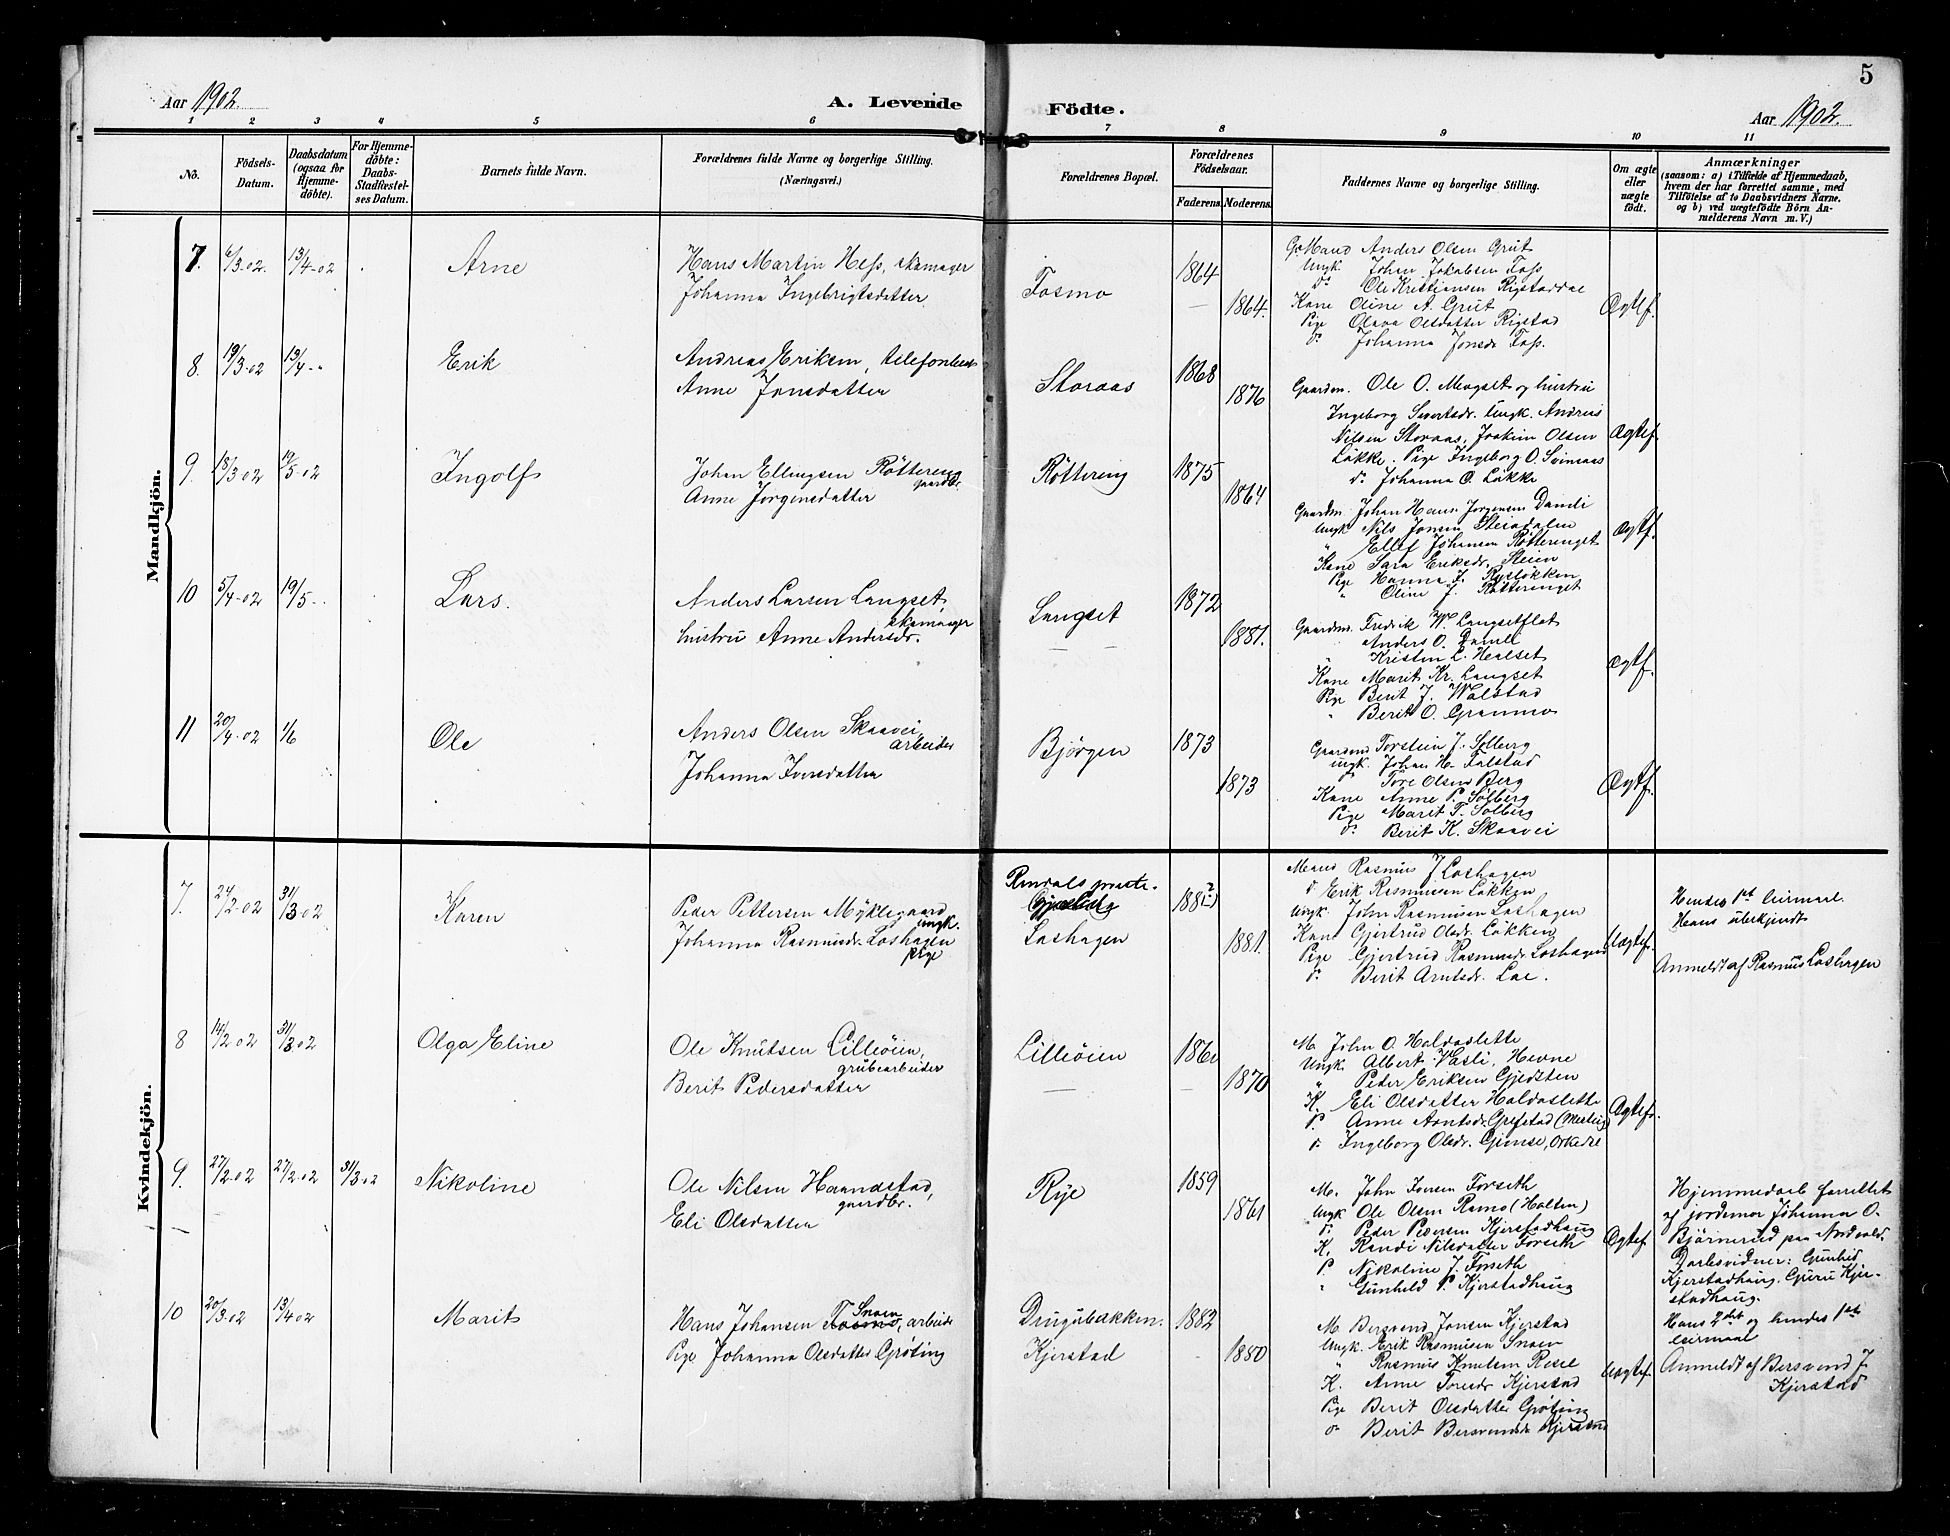 5
Aar 1902.
A. Levende Födte.
Aar 1902.
1 2 3 4 5 6 7 8 9 10 11
No.
Födsels-Datum.
Daabsdatum (ogsaa for Hjemme-döbte).
For Hjemme-döbte: Daabs-Stadfæstel-ses Datum.
Barnets fulde Navn.
Forældrenes fulde Navne og borgerlige Stilling.
(Næringsvei.)
Forældrenes Bopæl.
Forældrenes Födselsaar.
Faderens. Moderens.
Faddernes Navne og borgerlige Stilling.
Om ægte eller uægte födt.
Anmærkninger
(saasom: a) i Tilfælde af Hjemmedaab,
hvem der har forrettet samme, med
Tilföielse af to Daabsvidners Navne.
og b) ved uægtefödte Börn An-
melderens Navn m. V.)
Mandkjön.
7. 6/3 02. 13/4-02 Arne
Hans Martin Hess, skomager
Johanna Ingebrigtsdatter
Fosmo
1864
1864.
G. Mand Anders Olsen Grut
Ungk. Johan Jakobsen Foss
do Ole Kristiansen Rigstaddal
Kone Oline A. Grut
Pige Olava Olsdatter Rigstad
do Johanna Jonsdr Foss.
Ægtef.
8. 19/3 02 13/4 - " Erik
Andreas Eriksen,
Anne Jonsdatter
Storaas
1868
1876
Gaardm. Ole O. Moogset og hustru
Ingeborg Sivertsdr. Ungk. Andreas
Nilsen Storaas, Joakim Olsen
Løkke. Pige Ingeborg O. Svinsaas
do Johanna O. Løkke
Ægtef.
9. 18/3 02 19/5-02 Ingolf
Johan Ellingsen Røttereng
gaardb.
Anne Jørgensdatter
Røttereng
1875
1864
Gaardm. Johan Hans Jørgensen Damli
Ungk Nils Jonsen Steindalen
" Ellef Johansen Røtterenget
Kone Sara Eriksdr. Steien
Pige Hanna J. Rysløkken
" Oline J. Røtterenget
Ægtf.
10 5/4-02 19/5 - " Lars.
Anders Larsen Langset,
skomager
hustru Anne Andersdr.
Langset
1872
1881.
Gaardm. Fredrik W. Langsetflot
Anders O. Damli
" Kristen L. Healset
Kone Marit Kr. Langset
Pige Berit J. Wolstad
" Berit O. Granmo
Ægtf.
11 20/4 02 1/6 Ole
Anders Olsen Skaavei,
arbeider
Johanna Iversdatter
Bjørgen
1873
1873
Gaardmd Torstein J. Solberg
Ungk. Johan H. Folstad
" Tore Olsen Berg
Kone Anne P. Solberg
Pige Marit T. Solberg
do Berit K. Skaavei
Ægtf.
Kvindekjön.
7. 24/2-02 31/3 02 Karen
Peder Pettersen Myklegaard
ungk.
Johanna Rasmusdr. Loshagen
pige
Rindals præste-
Loshagen
1881.
Mand Rasmus J. Loshagen
do Erik Rasmussen Løkken
Ungk. John Rasmussen Loshagen
Kone Gjertrud Olsdr. Løkken
Pige Gjertrud Rasmusdr. Loshagen
do Berit Arntsdr. Loe.
Uægtef.
Hendes 1ste leiermaal.
Hans ubekjendt
Anmeldt af Rasmus Loshagen
8 14/2 02 31/3 02 Olga Eline
Ole Knutsen Lilleøien,
grubearbeider
Berit Pedersdatter
Lilleøien
1870
M. John O. Holdasletta
Ungk. Albert Vasli, Hevne
" Peder Eriksen Gjedsten
K. Eli Olsdatter Holdasletta
P. Anne Arntsdr. Grefstad (Meslug)
do Ingeborg Olsdr. Gjemse, Orkedre
Ægtef.
9. 27/2.02 27/2 02 31/3.02 Nikoline
Ole Nilsen Haandstad,
gaardbr.
Eli Olsdatter
Rye
1859
1861
M. John Jonsen Forseth
Ungk Ole Olsen Ramo (Holten)
do Peder Pedersen Kjerstadhaug
K. Randi Nilsdatter Forseth
P. Nikoline J. Forseth
" Gunhild P. Kjerstadhaug
Ægtef.
Hjemmedaab forrettet
af jordemor Johanna O.
Bjørnerud paa
Daabsvidner: Gunhild
Kjerstadhaug, Guru Kjer-
stadhaug.
10 20/3.02 13/4 02 Marit
Hans Johansen Fosmo Snoen, arbeide
Pige Johanna Olsdatter Grøting
Drugubakken.
Kjerstad
1882
1880
M Bersvend Jonsen Kjerstad
Ungk. Erik Rasmussen Snoen
" Rasmus Knutsen
K. Anne Toresdr Kjerstad
Pige Berit Olsdatter Grøting
do Berit Bersvendsdr Kjerstad
Uægtef.
Hans 2det og hendes 1ste
leiermaal
Anmeldt af Bersvend J.
Kjerstad